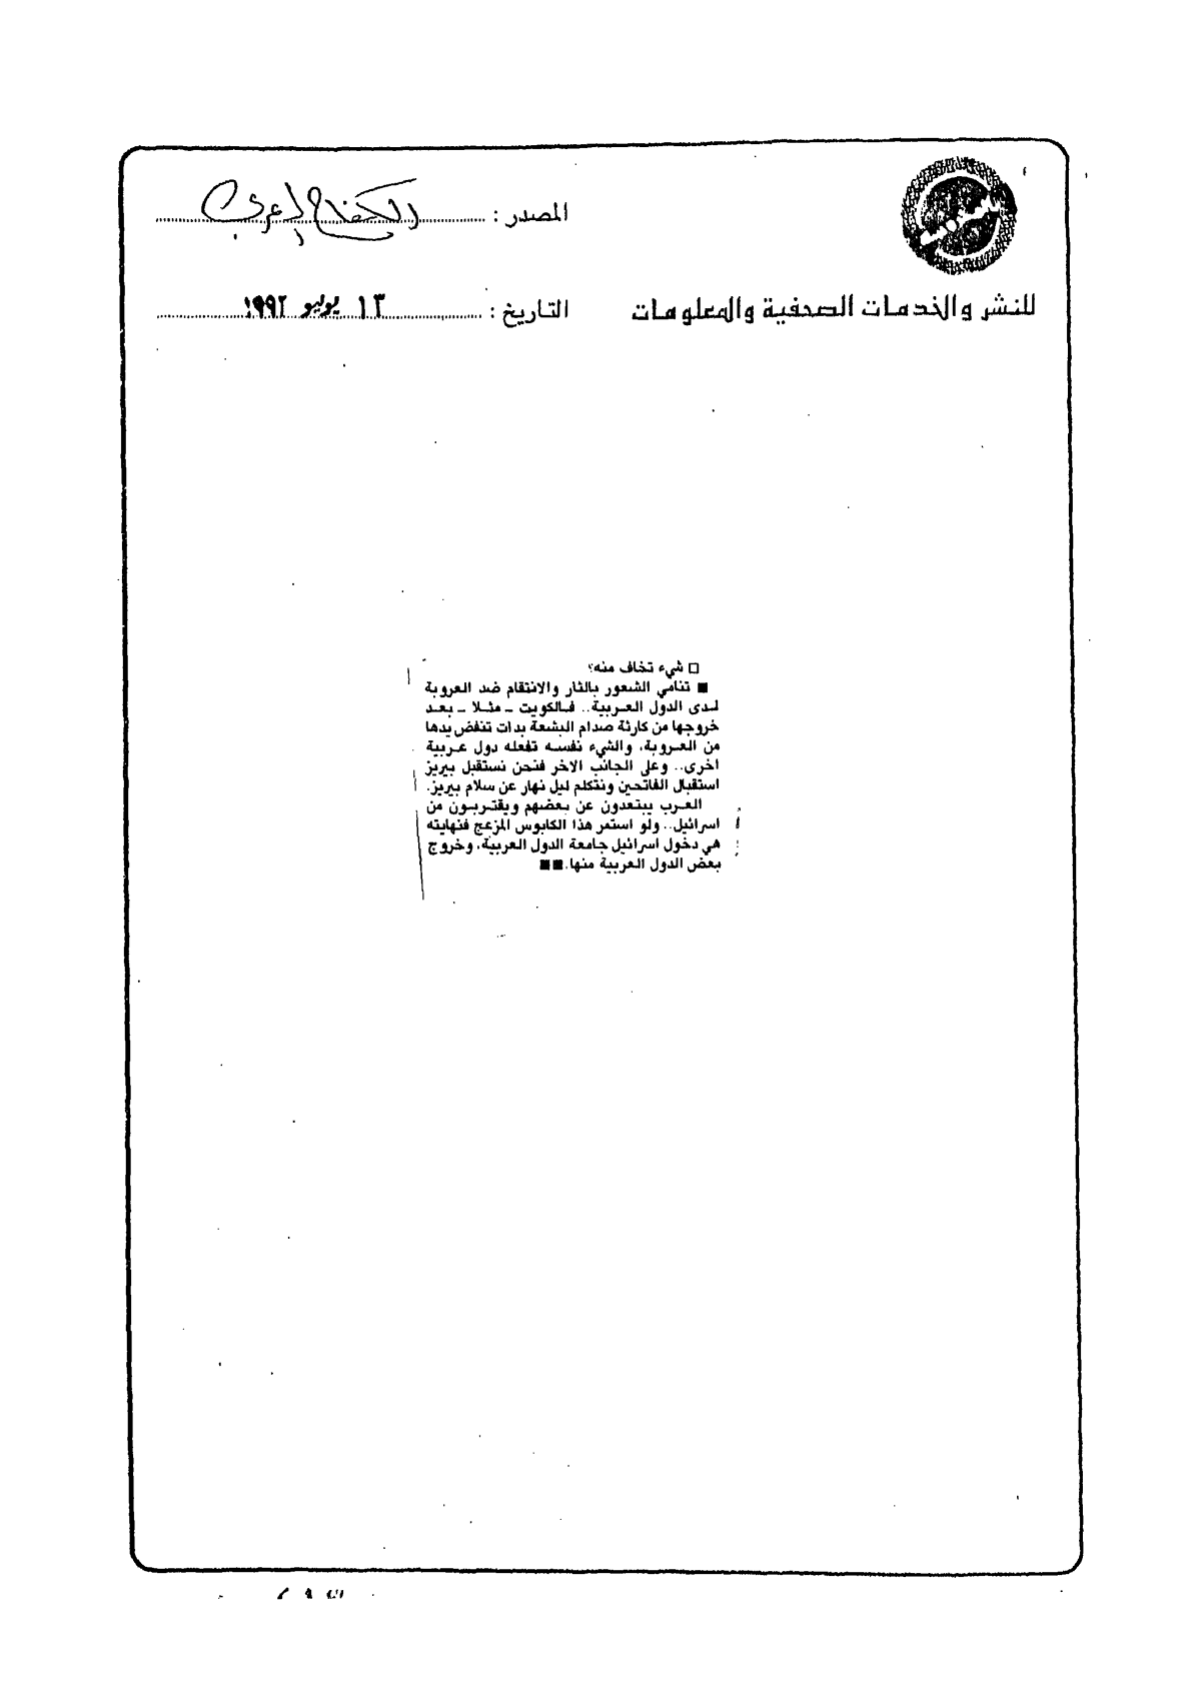 المصدر : الكفاح العربي
للنشر والخدمات الصحفية والمعلومات
التاريخ : ١٣ يوليو ١٩٩٢
□ شيء تخاف منه؟
■ تنامي الشعور بالثار والانتقام ضد العروبة
لدى الدول العربية.. فالكويت ــ مثلا ــ بعد
خروجها من كارثة صدام البشعة بدات تنفض يدها
من العروبة، والشيء نفسه تفعله دول عربية
اخرى.. وعلى الجانب الاخر فنحن نستقبل بيريز
استقبال الفاتحين ونتكلم ليل نهار عن سلام بيريز.
العرب يبتعدون عن بعضهم ويقتربون من
اسرائيل.. ولو استمر هذا الكابوس المزعج فنهايته
هي دخول اسرائيل جامعة الدول العربية، وخروج
بعض الدول العربية منها.■■